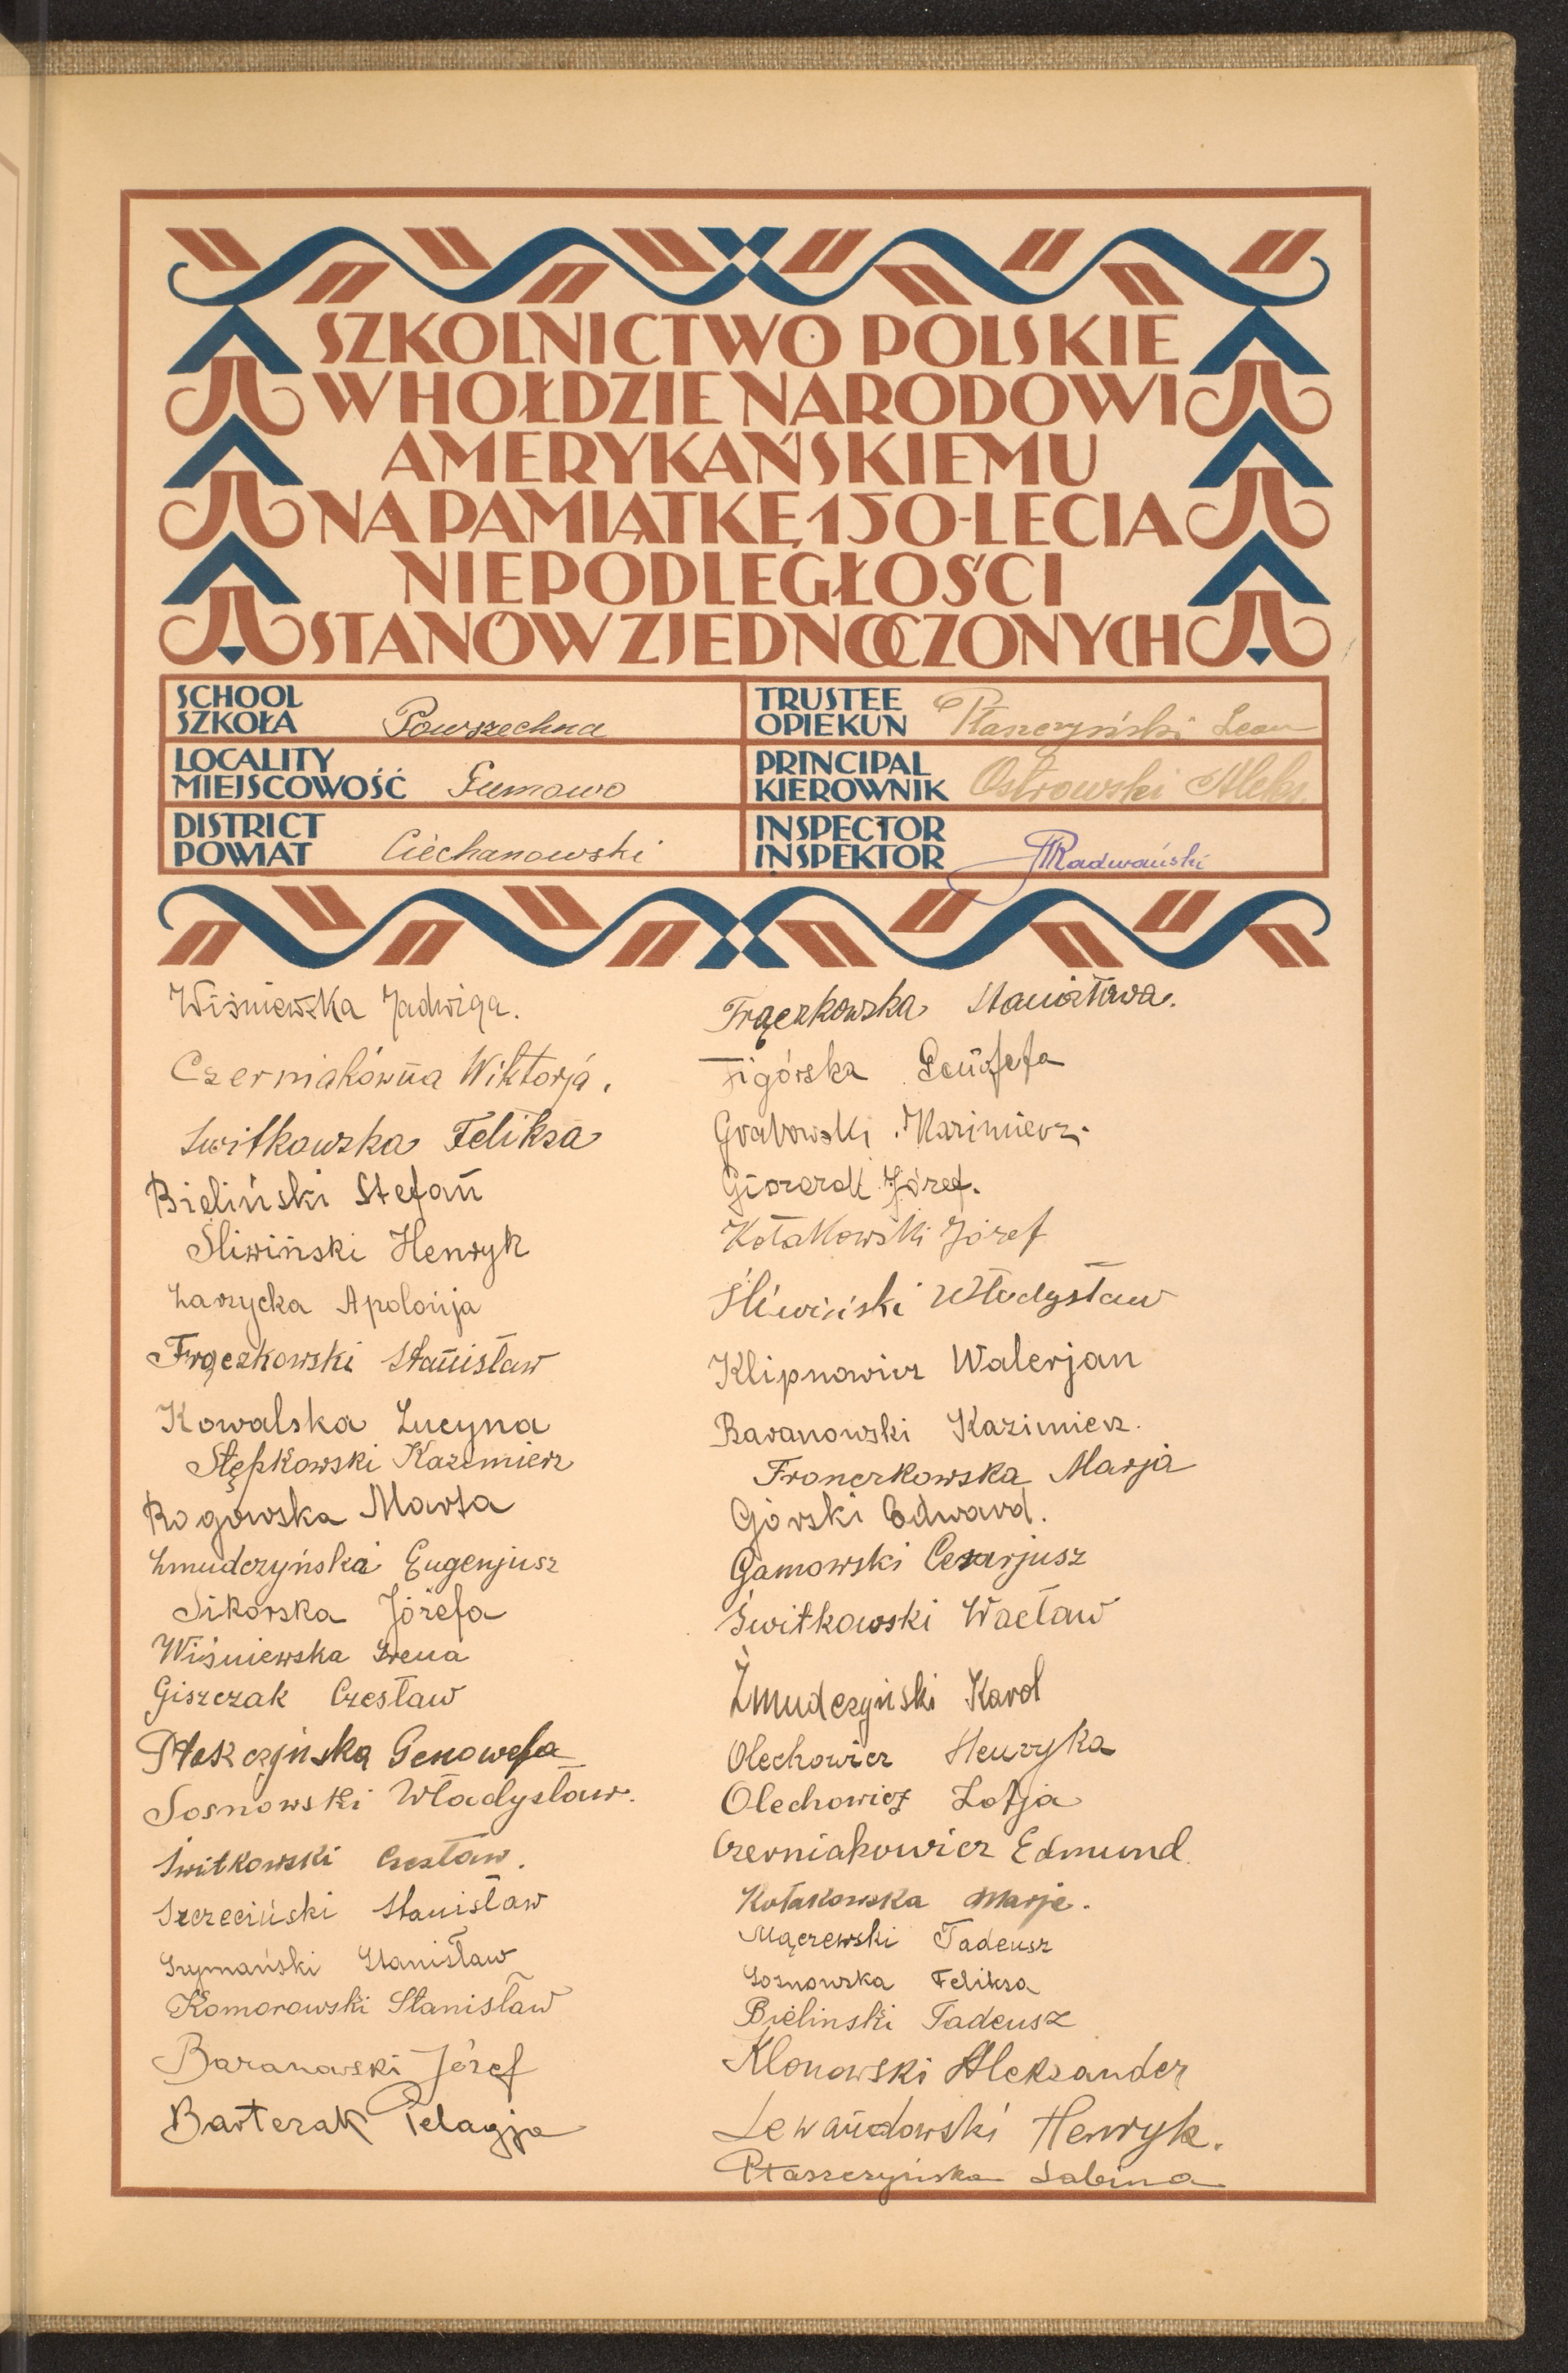 SZKOLNICTWO POLSKIE
W HOŁDZIE NARODOWI
AMERYKAŃSKIEMU
NA PAMIĄTKĘ 150-LECIA
NIEPODLEGŁOŚCI
STANÓW ZJEDNOCZONYCH
SCHOOL
SZKOŁA Powszechna
LOCALITY
MIEJSCOWOŚĆ Gumowo
DISTRICT
POWIAT Ciechanowski
TRUSTEE
OPIEKUN Płaszczyński Leon
PRINCIPAL
KIEROWNIK Ostrowski Aleks.
INSPECTOR
INSPEKTOR Radwański
Wiśniewska Jadwiga.
Czerniakówna Wiktorja.
Świtkowska Feliksa
Bieliński Stefan
Śliwiński Henryk
Zarzycka Apolonja
Frączkowski Stanisław
Kowalska Lucyna
Stępkowski Kazimierz
Rogowska Marta
Żmudczyńska Eugenjusz
Sikorska Józefa
Wiśniewska Irena
Giszczak Czesław
Genowefa
Sosnowski Władysław.
Świtkowski Czesław.
Szczeciński Stanisław
Szymański Stanisław
Komorowski Stanisław
Baranowski Józef
Bartczak Pelagja
Frączkowska Stanisława.
Figórska
Grabowski Kazimierz.
Józef.
Kołakowski Józef
Śliwiński Władysław
Klipnowicz Walerjan
Baranowski Kazimierz.
Fronczkowska Marja
Górski Edward.
Gamowski Cezarjusz
Świtkowski Wacław
Żmudczyński Karol
Olechowicz Henryka
Olechowicz Zofja
Czerniakowicz Edmund
Kołakowska Marje.
Mączewski Tadeusz
Sosnowska Feliksa
Bielinski Tadeusz
Klonowski Aleksander
Lewandowski Henryk.
Ptaszczyńska Sabina